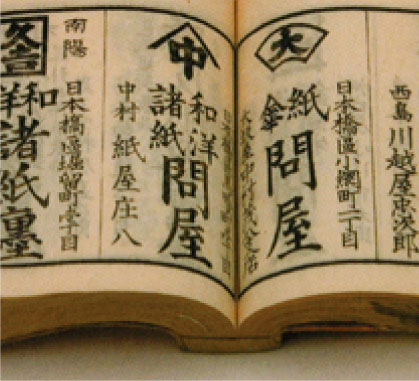 西島 川越屋忠次郎
日本橋區小網町二丁目
大
紙
傘
問屋
中
和洋
諸紙
問屋
中村 紙屋庄八
南陽 日本橋區堀留町壱丁目
久吉
和
洋
諸紙